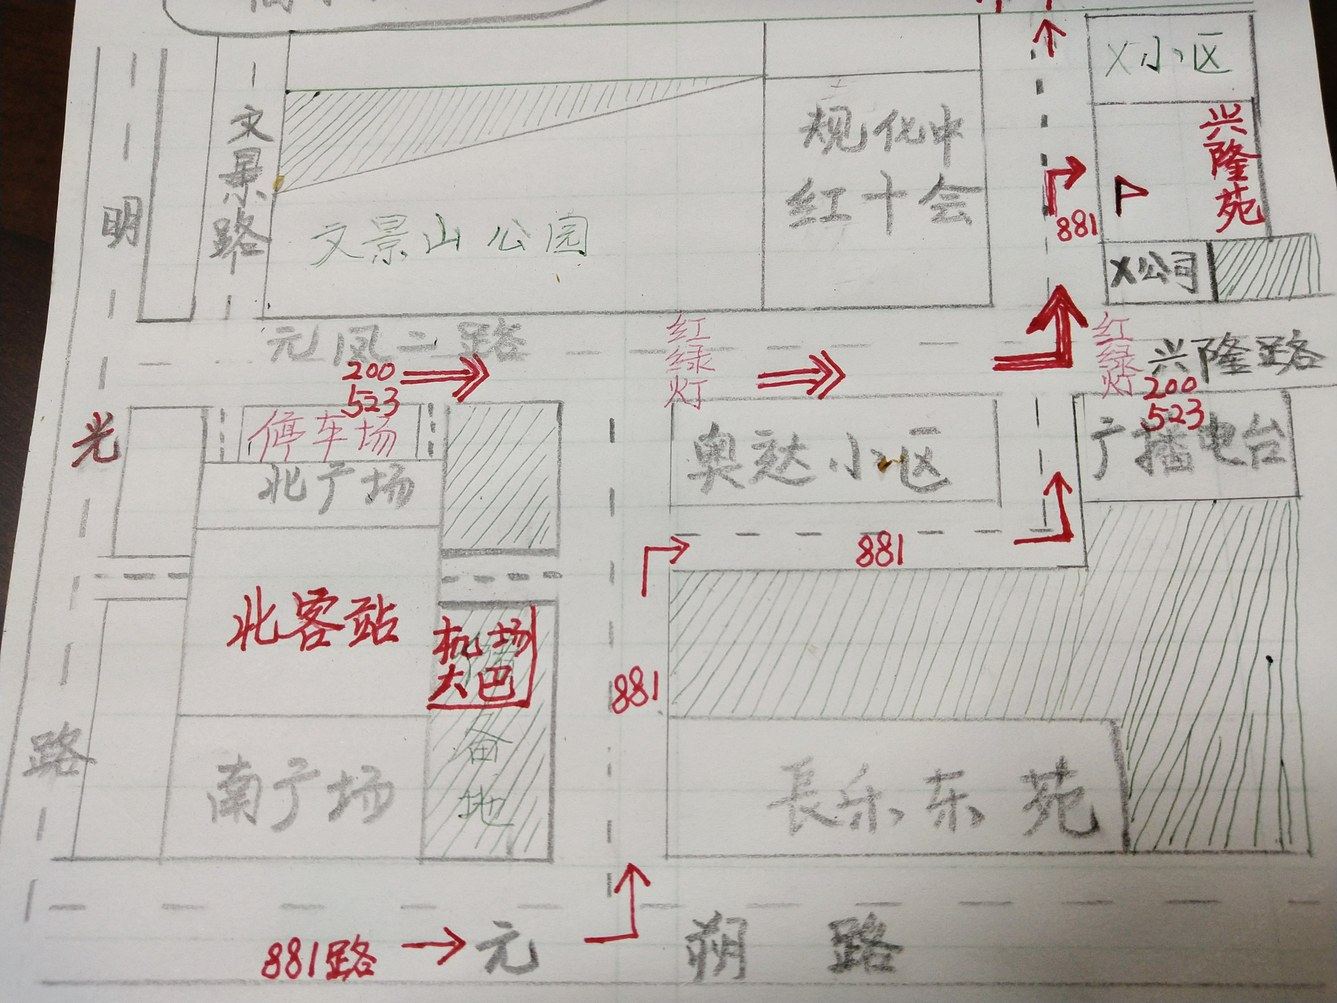 X小区
兴隆苑
文景路
规化中
红十会
明光路
文景山公园
881
X公司
元凤二路
红绿灯
红绿灯
兴隆路
200
523
200
523
停车场
北广场
奥达小区
广播电台
881
北客站
机场
大巴
881
备地
南广场
長乐东苑
881路
元朔路